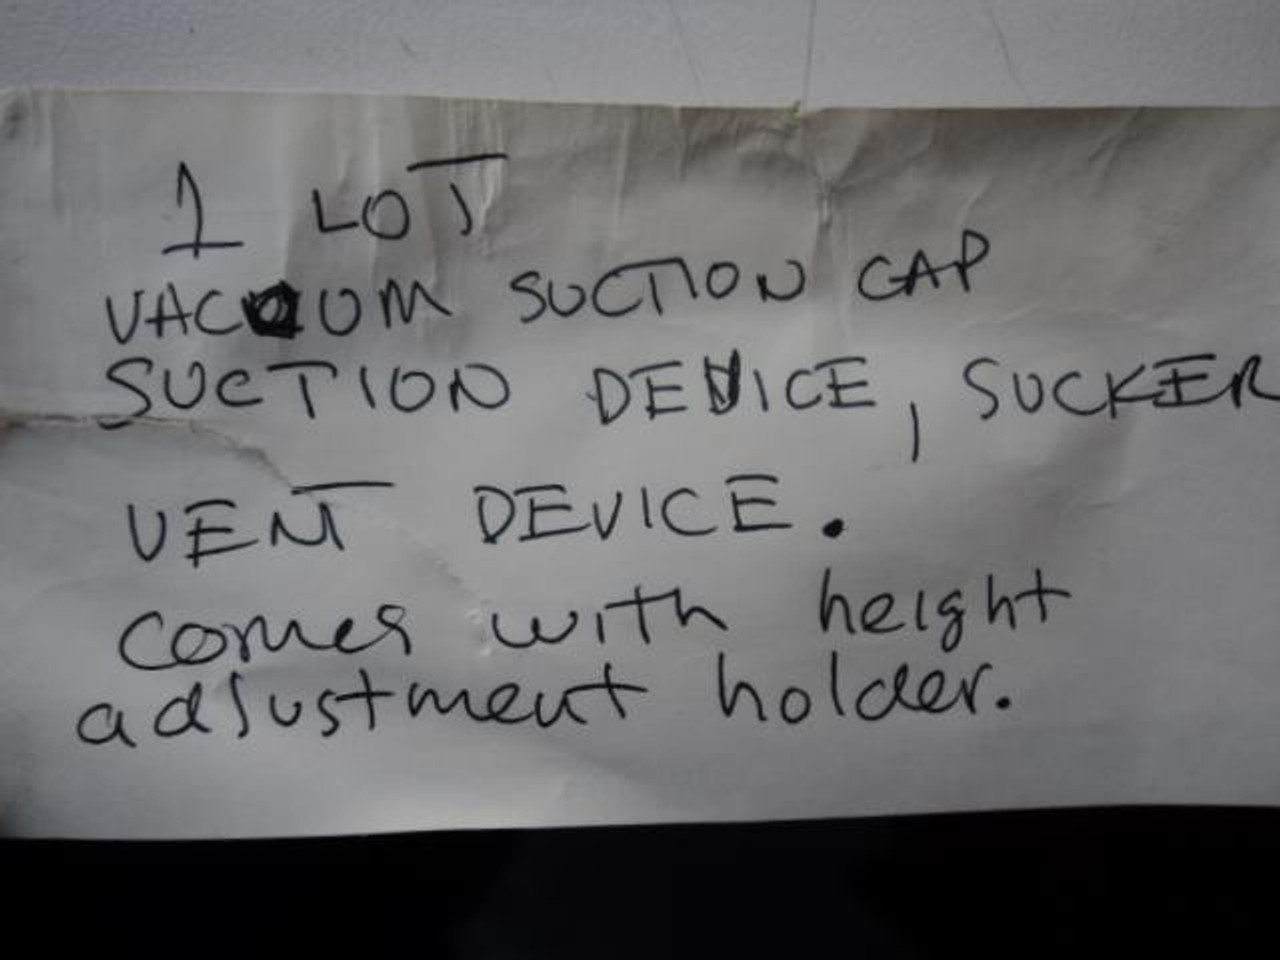 1 LOT
VACUUM SUCTION CAP
SUCTION DEVICE, SUCKER
VENT DEVICE.
comes with height
adjustment holder.